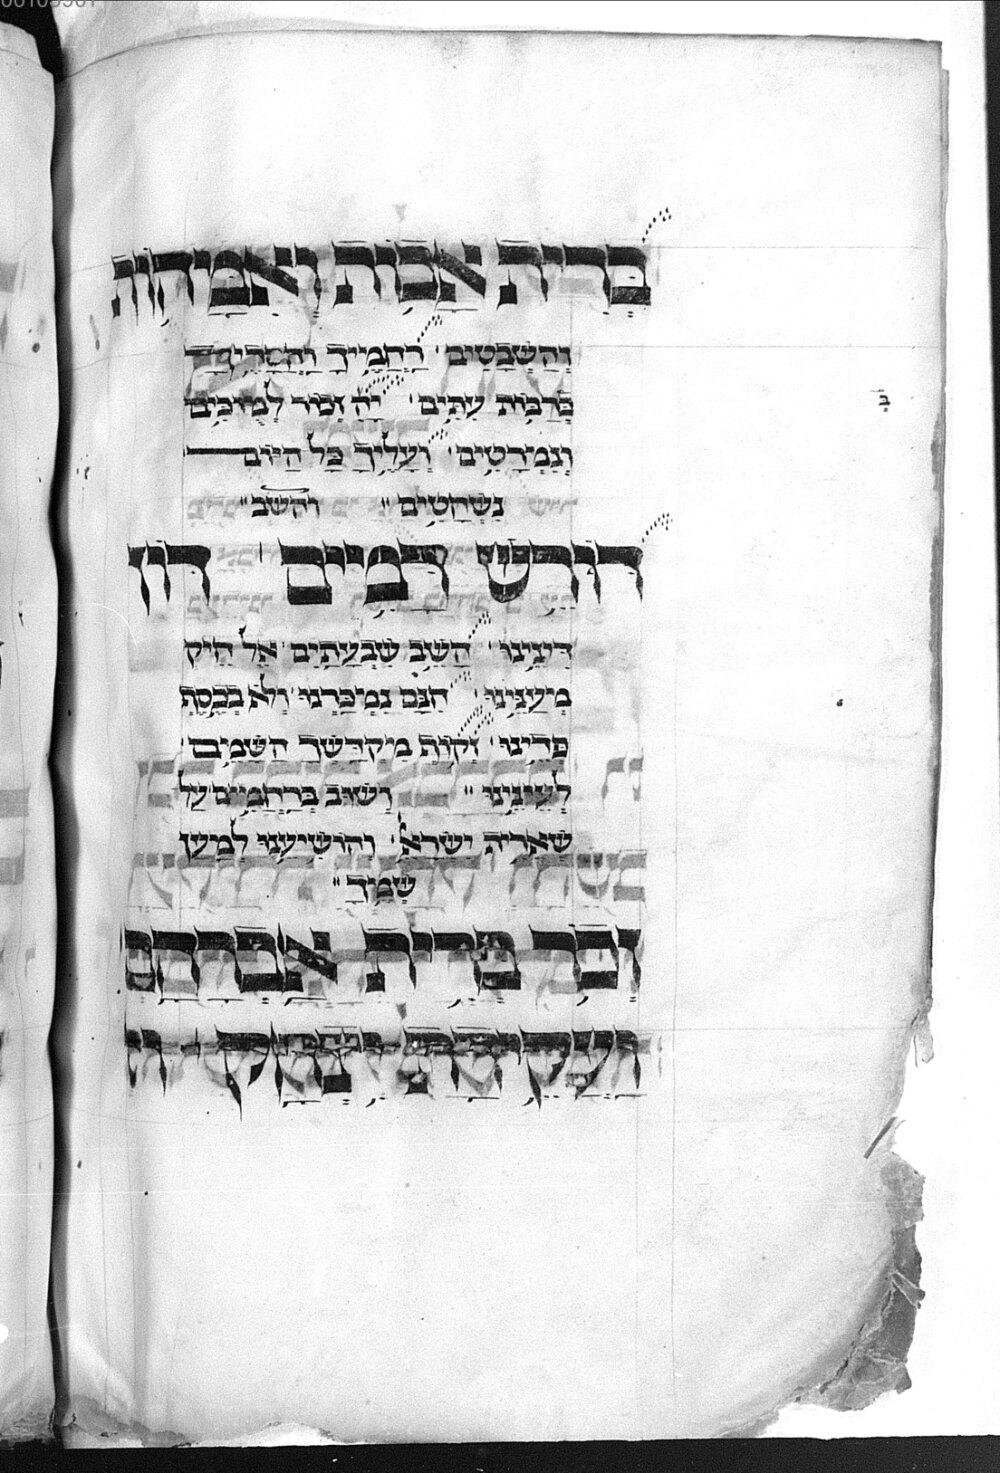 בְּרִית אָבוֹת וְאִמָּהוֹת
וְהַשְּׁבָטִים ׳ רַחֲמֶיךָ וַחֲסָדֶיךָ
בְּרַבּוֹת עִתִּים ׳ יָהּ זְכוֹר לְמוּכִּים
וְנִמְרָטִים ׳ וְעָלֶיךָ כָּל הַיּוֹם
נִשְׁחָטִים ״ והשב ״
דּוֹרֵשׁ דָּמִים ׳ דּוּן
דִּינֵינוּ ׳ הָשֵׁב שִׁבְעָתַיִם אֶל חֵיק
מְעַנֵּינוּ ׳ חִנָּם נִמְכַּרְנוּ ׳ וְלֹא בְכֶסֶף
פְּדֵינוּ ׳ זְקוֹף מִקְדָּשְׁךָ הַשָּׁמֵם
לְעֵינֵינוּ ״ וְשׁוּב בְּרַחֲמִים עַל
שְׁאֵרִית יִשְׂרָאֵ׳ וְהוֹשִׁיעֵנוּ לְמַעַן
שְׁמֶךָ ״
זְכֹר בְּרִית אַבְרָהָם
ב